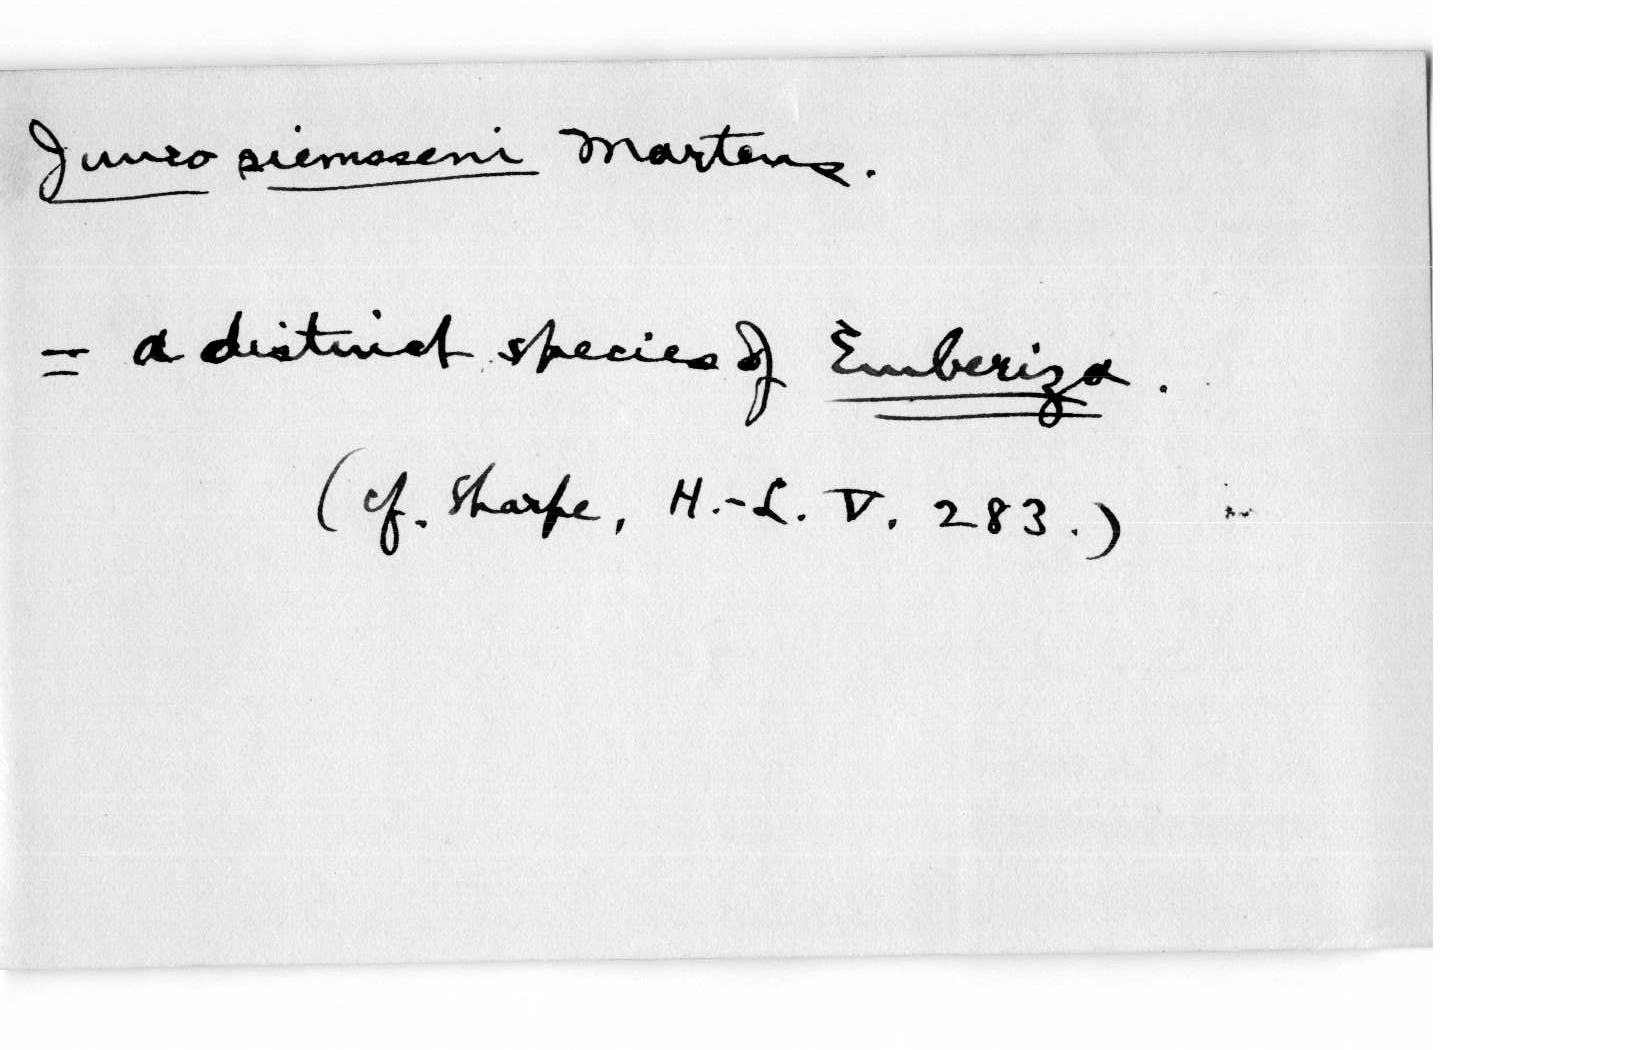 Junco siemsseni Martens.
= a distinct species of Emberiza.
(cf. Sharpe, H.-L. V. 283.)